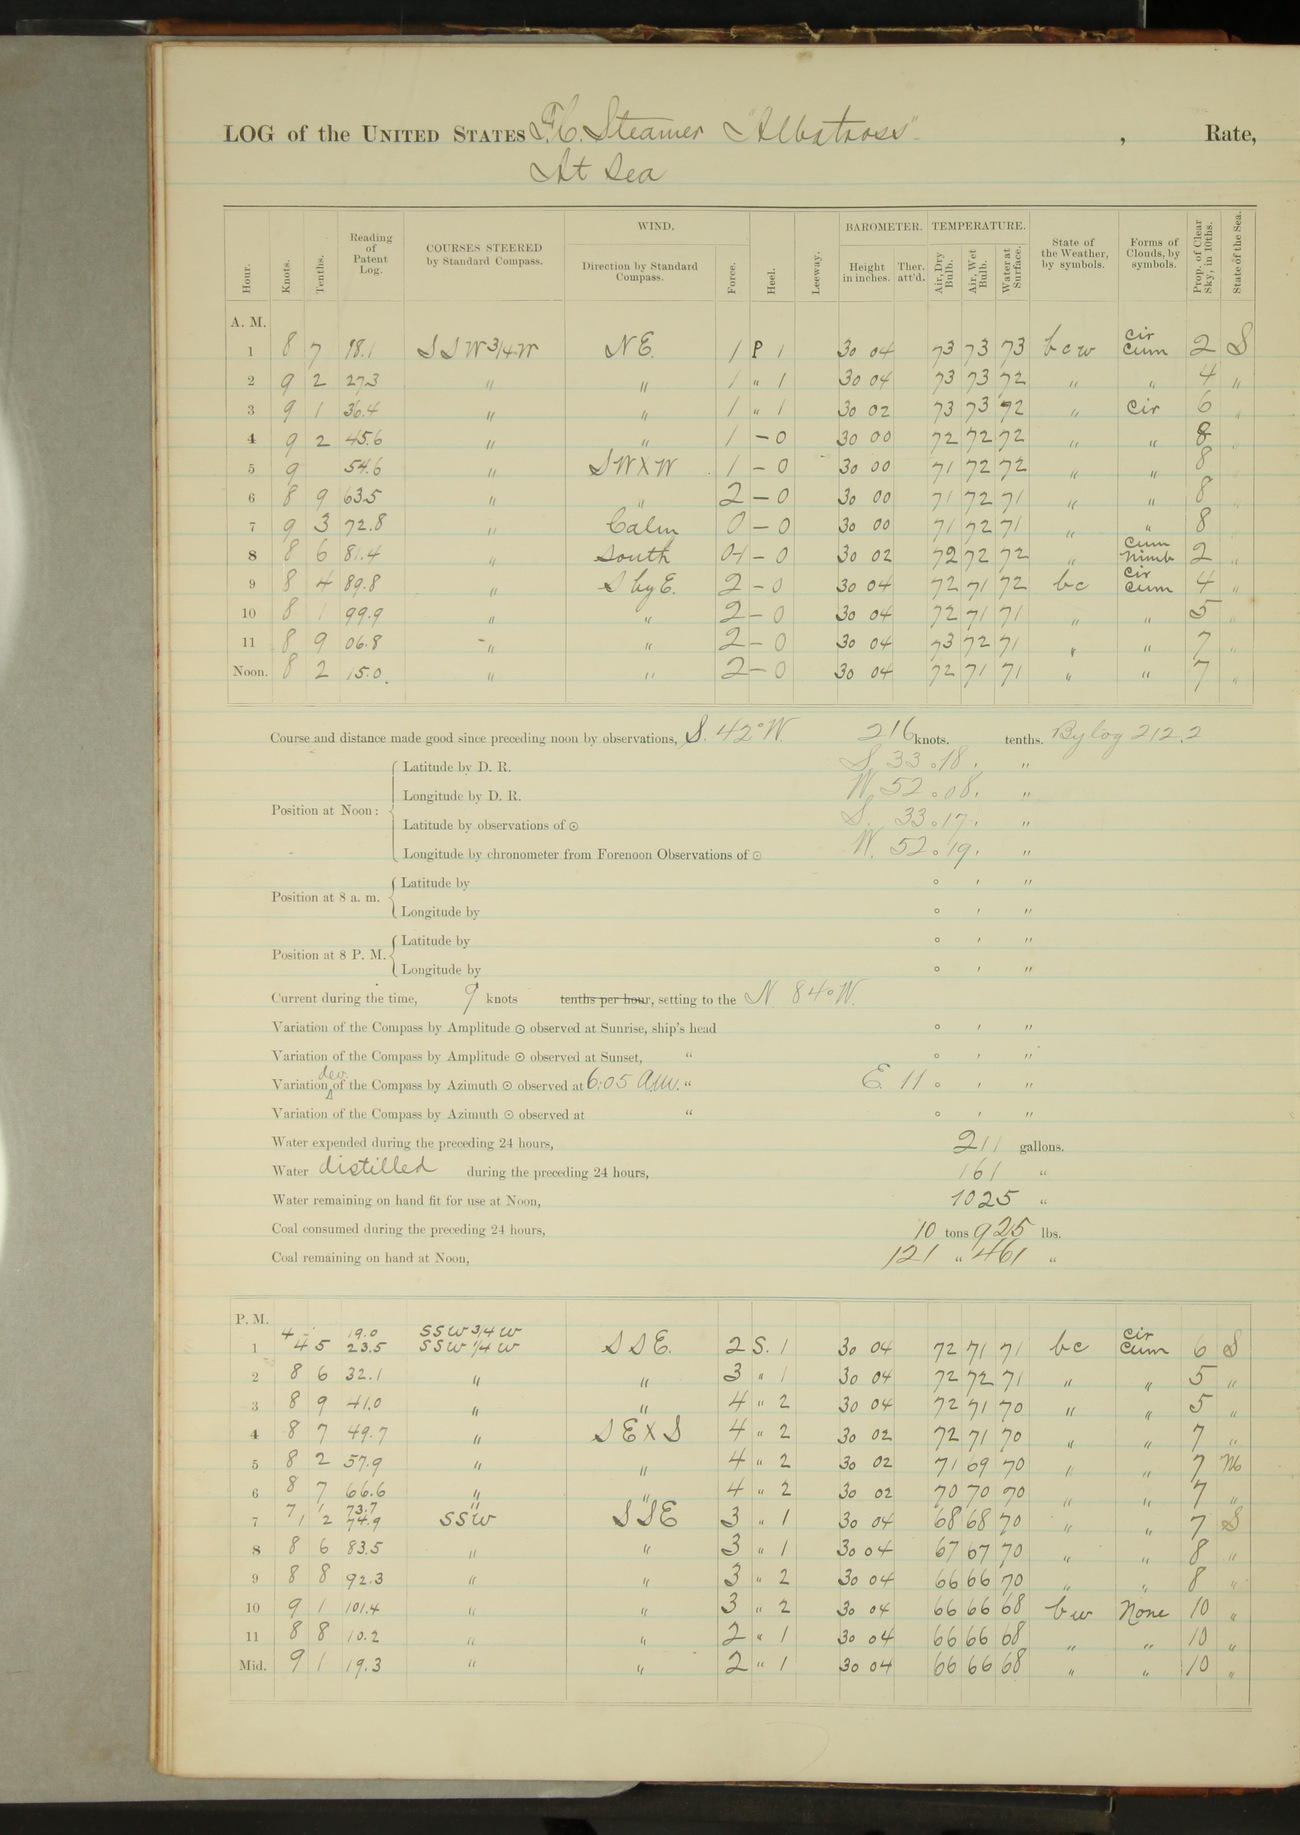 LOG of the UNITED STATES F.C. Steamer "Albatross" , Rate,
At Sea
Hour. Knots. Tenths. Reading of Patent Log. COURSES STEERED by Standard Compass. WIND. Direction by Standard Compass. Force. Heel. Leeway. BAROMETER. Height in inches. Ther. att'd. TEMPERATURE. Air, Dry Bulb. Air, Wet Bulb. Water at Surface. State of the Weather, by symbols. Forms of Clouds, by symbols. Prop. of Clear Sky, in 10ths. State of the Sea.
A. M.
1 8 7 18.1 SSW 3/4 W NE. 1 P 1 30 04 73 73 73 bcw Cir Cum 2 S
2 9 2 27.3 " " 1 " 1 30 04 73 73 72 " " 4 "
3 9 1 36.4 " " 1 " 1 30 02 73 73 72 " Cir 6 "
4 9 2 45.6 " " 1 – 0 30 00 72 72 72 " " 8 "
5 9 54.6 " SWXW 1 – 0 30 00 71 72 72 " " 8 "
6 8 9 63.5 " " 2 – 0 30 00 71 72 71 " " 8 "
7 9 3 72.8 " Calm 0 – 0 30 00 71 72 71 " " 8 "
8 8 6 81.4 " South 0-1 – 0 30 02 72 72 72 " Cum Nimb 2 "
9 8 4 89.8 " S by E. 2 – 0 30 04 72 71 72 bc Cir Cum 4 "
10 8 1 99.9 " " 2 – 0 30 04 72 71 71 " " 5 "
11 8 9 06.8 " " 2 – 0 30 04 73 72 71 " " 7 "
Noon. 8 2 15.0 " " 2 – 0 30 04 72 71 71 " " 7 "
Course and distance made good since preceding noon by observations, S. 42° W. 216 knots. tenths. By log 212.2
Latitude by D. R. S. 33 ° 18 ' "
Longitude by D. R. W. 52 ° 08 ' "
Position at Noon:
Latitude by observations of ⊙ S. 33 ° 17 ' "
Longitude by chronometer from Forenoon Observations of ⊙ W. 52 ° 19 ' "
Position at 8 a. m. Latitude by ° ' "
Longitude by ° ' "
Position at 8 P. M. Latitude by ° ' "
Longitude by ° ' "
Current during the time, 9 knots tenths per hour, setting to the N. 84° W.
Variation of the Compass by Amplitude ⊙ observed at Sunrise, ship's head ° ' "
Variation of the Compass by Amplitude ⊙ observed at Sunset, " ° ' "
dev.
Variation of the Compass by Azimuth ⊙ observed at 6:05 A.M. " E. 11 ° ' "
Variation of the Compass by Azimuth ⊙ observed at " ° ' "
Water expended during the preceding 24 hours, 211 gallons.
Water distilled during the preceding 24 hours, 161 "
Water remaining on hand fit for use at Noon, 1025 "
Coal consumed during the preceding 24 hours, 10 tons 925 lbs.
Coal remaining on hand at Noon, 121 " 461 "
P. M.
4 - 19.0 SSW 3/4 W
1 4 5 23.5 SSW 1/4 W SSE. 2 S. 1 30 04 72 71 71 bc Cir Cum 6 S
2 8 6 32.1 " " 3 " 1 30 04 72 72 71 " " 5 "
3 8 9 41.0 " " 4 " 2 30 04 72 71 70 " " 5 "
4 8 7 49.7 " SEXS 4 " 2 30 02 72 71 70 " " 7 "
5 8 2 57.9 " " 4 " 2 30 02 71 69 70 " " 7 M
6 8 7 66.6 " " 4 " 2 30 02 70 70 70 " " 7 "
7 1 73.7 "
7 1 2 74.9 SSW SSE 3 " 1 30 04 68 68 70 " " 7 S
8 8 6 83.5 " " 3 " 1 30 04 67 67 70 " " 8 "
9 8 8 92.3 " " 3 " 2 30 04 66 66 70 " " 8 "
10 9 1 101.4 " " 3 " 2 30 04 66 66 68 bw None 10 "
11 8 8 10.2 " " 2 " 1 30 04 66 66 68 " " 10 "
Mid. 9 1 19.3 " " 2 " 1 30 04 66 66 68 " " 10 "